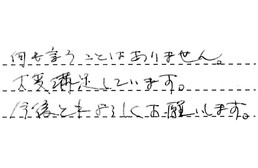 何も言うことはありません。
大変満足しています。
今後ともよろしくお願いします。